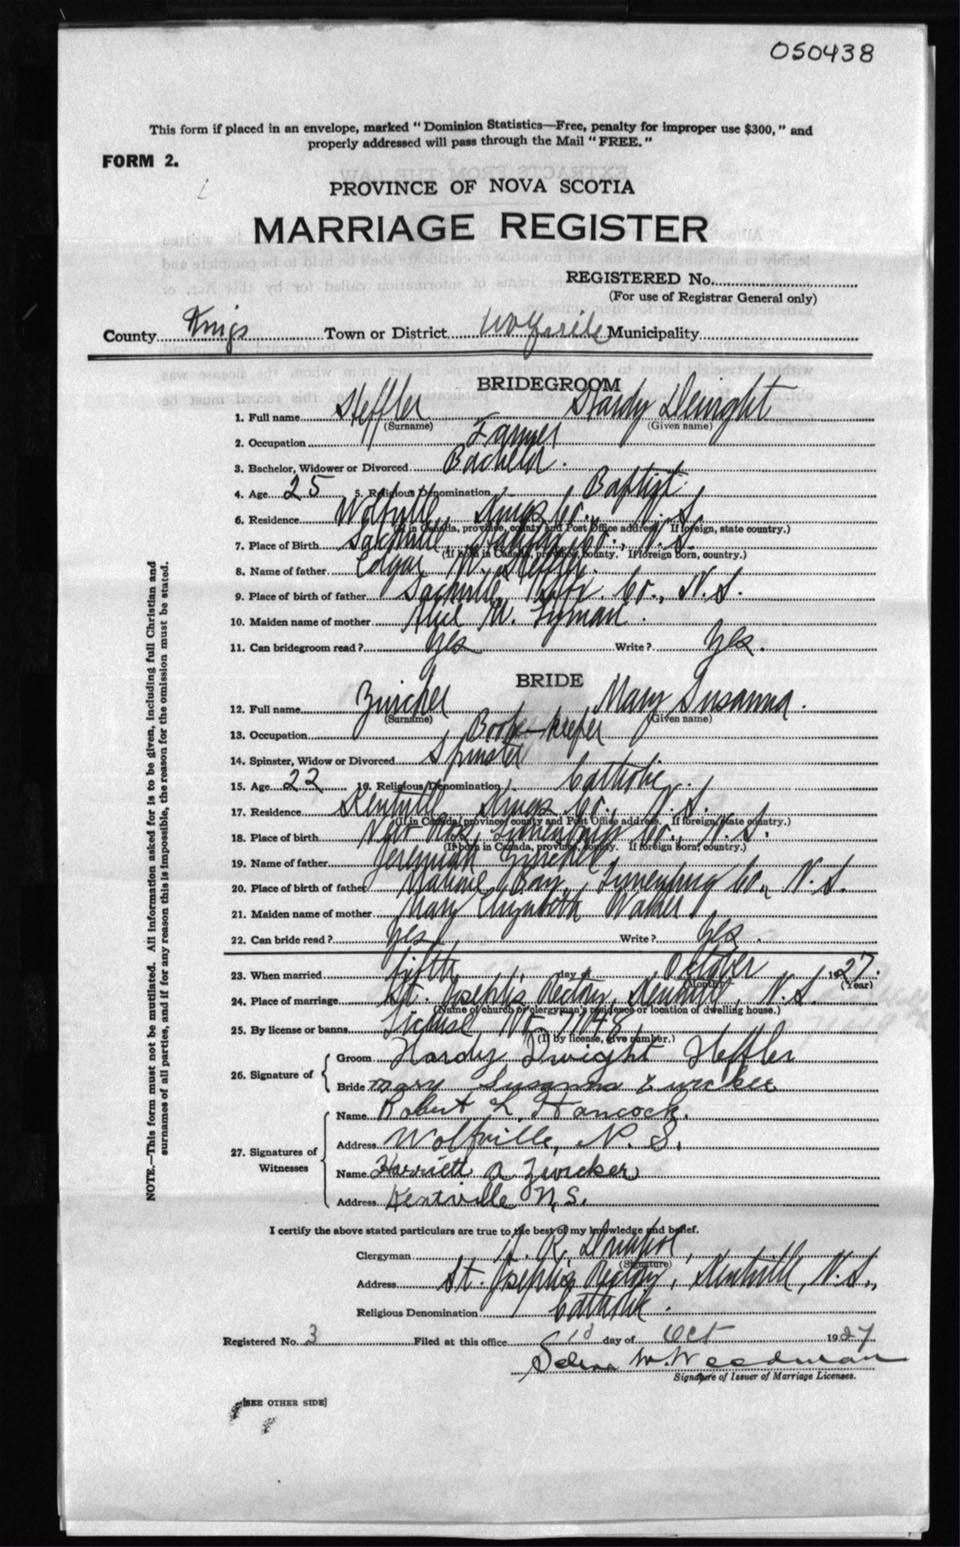 050438
This form if placed in an envelope, marked "Dominion Statistics—Free, penalty for improper use $300," and
properly addressed will pass through the Mail "FREE."
FORM 2.
PROVINCE OF NOVA SCOTIA
MARRIAGE REGISTER
REGISTERED No.
(For use of Registrar General only)
County Kings Town or District Wolfville Municipality
BRIDEGROOM
1. Full name Heffler Hardy Dwight
(Surname) (Given name)
2. Occupation Farmer
3. Bachelor, Widower or Divorced Bachelor.
4. Age 25 5. Religious Denomination Baptist
6. Residence Wolfville, Kings Co., N.S.
(If in Canada, province, county and Post Office address. If foreign, state country.)
7. Place of Birth Sackville, Halifax Co., N.S.
(If born in Canada, province, county. If foreign born, country.)
8. Name of father Edgar W. Heffler.
9. Place of birth of father Sackville, Co., N.S.
10. Maiden name of mother Alice M.
11. Can bridegroom read? Yes Write? Yes.
BRIDE
12. Full name Zwicker Mary Susanna.
(Surname) (Given name)
13. Occupation Book-keeper
14. Spinster, Widow or Divorced Spinster
15. Age 22 16. Religious Denomination Catholic.
17. Residence Kentville, Kings Co., N.S.
(If in Canada, province, county and Post Office address. If foreign, state country.)
18. Place of birth New Ross, Lunenburg Co., N.S.
(If born in Canada, province, county. If foreign born, country.)
19. Name of father Jeremiah Zwicker
20. Place of birth of father Bay, Lunenburg Co., N.S.
21. Maiden name of mother Mary Elizabeth
22. Can bride read? Yes Write? Yes.
23. When married fifth day of October 1927.
(Month) (Year)
24. Place of marriage St. Joseph's Rectory, Kentville, N.S.
(Name of church or clergyman's residence or location of dwelling house.)
25. By license or banns License, No.
(If by license, give number.)
26. Signature of { Groom Hardy Dwight Heffler
Bride Mary Susanna Zwicker
27. Signatures of Witnesses { Name Robert L. Hancock.
Address Wolfville, N.S.
Name Harriett A Zwicker
Address Kentville N.S.
I certify the above stated particulars are true to the best of my knowledge and belief.
Clergyman
(Signature)
Address St. Joseph's Rectory, Kentville, N.S.,
Religious Denomination Catholic.
Registered No. 3 Filed at this office day of Oct 1927
Signature of Issuer of Marriage Licenses.
[SEE OTHER SIDE]
NOTE.—This form must not be mutilated. All information asked for is to be given, including full Christian and
surnames of all parties, and if for any reason this is impossible, the reason for the omission must be stated.